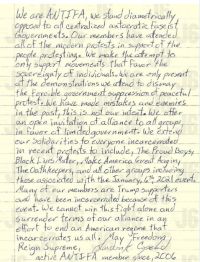 We are ANTIFA, we stand diametrically
opposed to all centralized autocratic fascist
Governments. Our members have attended
all of the modern protests in support of the
people protesting. We make the attempt to
only support movements that favor the
sovereignty of individuals. We are only present
at the demonstrations we attend to dismay
the forcible government suppression of peaceful
protest. We have made mistakes and enemies
in the past, this is not our intent. We offer
an open invitation of alliance to all groups
in favor of limited government. We extend
our solidarity to everyone incarcerated
in recent protests to include, The Proud Boys,
Black Lives Matter, Make America Great Again,
The Oathkeepers, and all other groups including
those associated with the January 6th, 2021 event.
Many of our members are Trump supporters
and have been incarcerated because of this
event. We cannot win this fight alone and
surrender terms of our alliance in an
effort to end an American regime that
incarcerates us all. May Freedom
Reign Supreme,
active ANTIFA member since, 2006